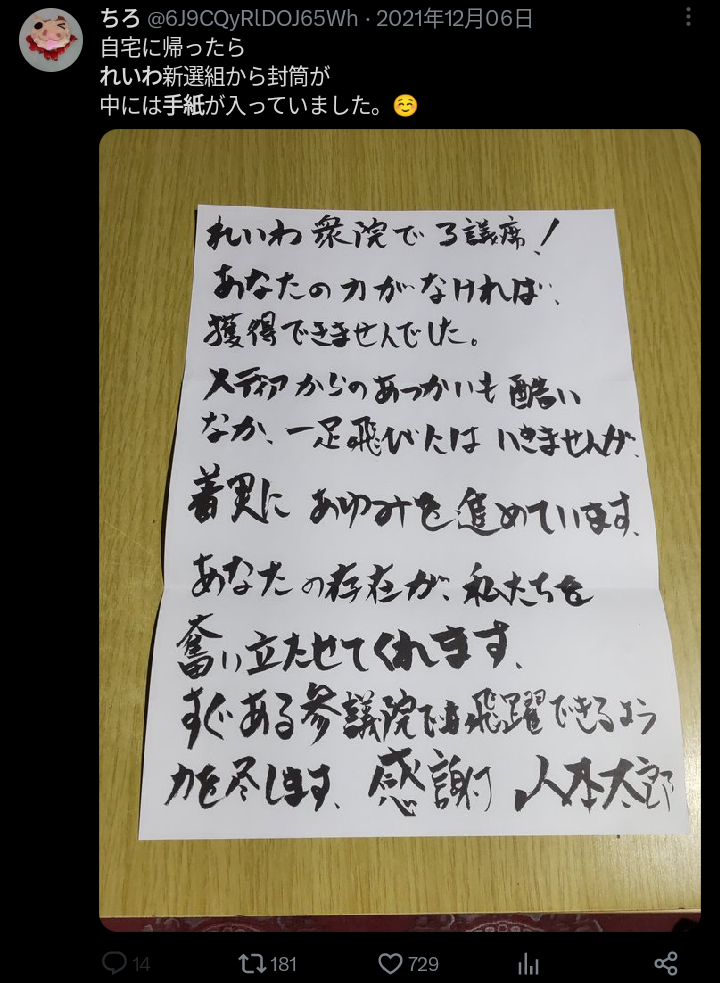 ちろ @6J9CQyRlDOJ65Wh · 2021年12月06日
自宅に帰ったら
れいわ新選組から封筒が
中には手紙が入っていました。☺️
れいわ衆院で3議席！
あなたの力がなければ、
獲得できませんでした。
メディアからのあつかいも酷い
なか、一足飛びにはいきませんが、
着実にあゆみを進めています。
あなたの存在が、私たちを
奮い立たせてくれます。
すぐある参議院では飛躍できるよう
力を尽します。感謝 山本太郎
14 181 729